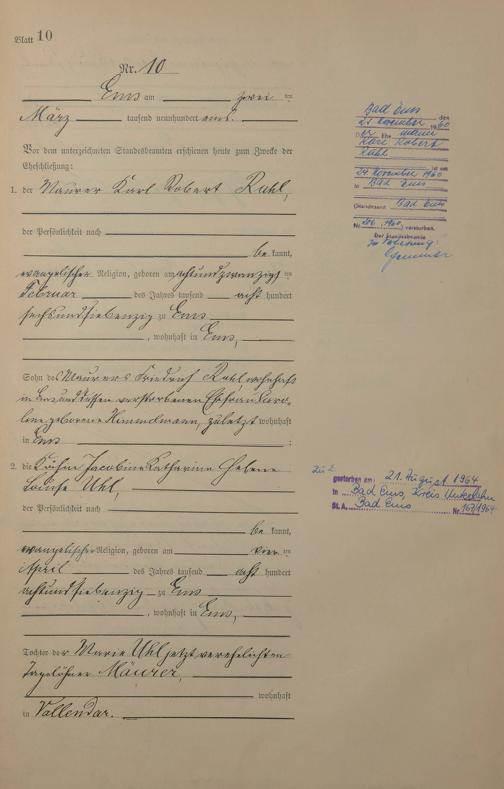 Blatt 10
Nr. 10
Ems am zwei ten
März tausend neunhundert eins.
Vor dem unterzeichneten Standesbeamten erschienen heute zum Zwecke der
Eheschließung:
1. der Maurer Karl Robert Ruhl,
der Persönlichkeit nach
be kannt,
evangelischer Religion, geboren am achtundzwanzigsten
Februar des Jahres tausend acht hundert
sechsundsiebenzig zu Ems
, wohnhaft in Ems,
Sohn des Maurers Friedrich Ruhl wohnhaft
in Ems und dessen verstorbenen Ehefrau Caro-
line geborene Himmelmann, zuletzt wohnhaft
in Ems ;
2. die Köchin Jacobine Katharine Helene
Louise Uhl,
der Persönlichkeit nach
be kannt,
evangelischer Religion, geboren am vier ten
April des Jahres tausend acht hundert
achtundsiebenzig zu Ems
, wohnhaft in Ems,
Tochter der Marie Uhl jetzt verehelichten
Tagelöhner Mäurer,
wohnhaft
in Vallendar.
Bad Ems
den
November 1960
Der Ehemann
Karl Robert
Ruhl
ist am
24. November 1960
in Bad Ems
(Standesamt Bad Ems
Nr. 206/1960) verstorben.
Der Standesbeamte
In Vertretung:
Zu 2
gestorben am: 21. August 1964
in Bad Ems, Kreis Unterlahn
St. A. Bad Ems Nr. 167/1964